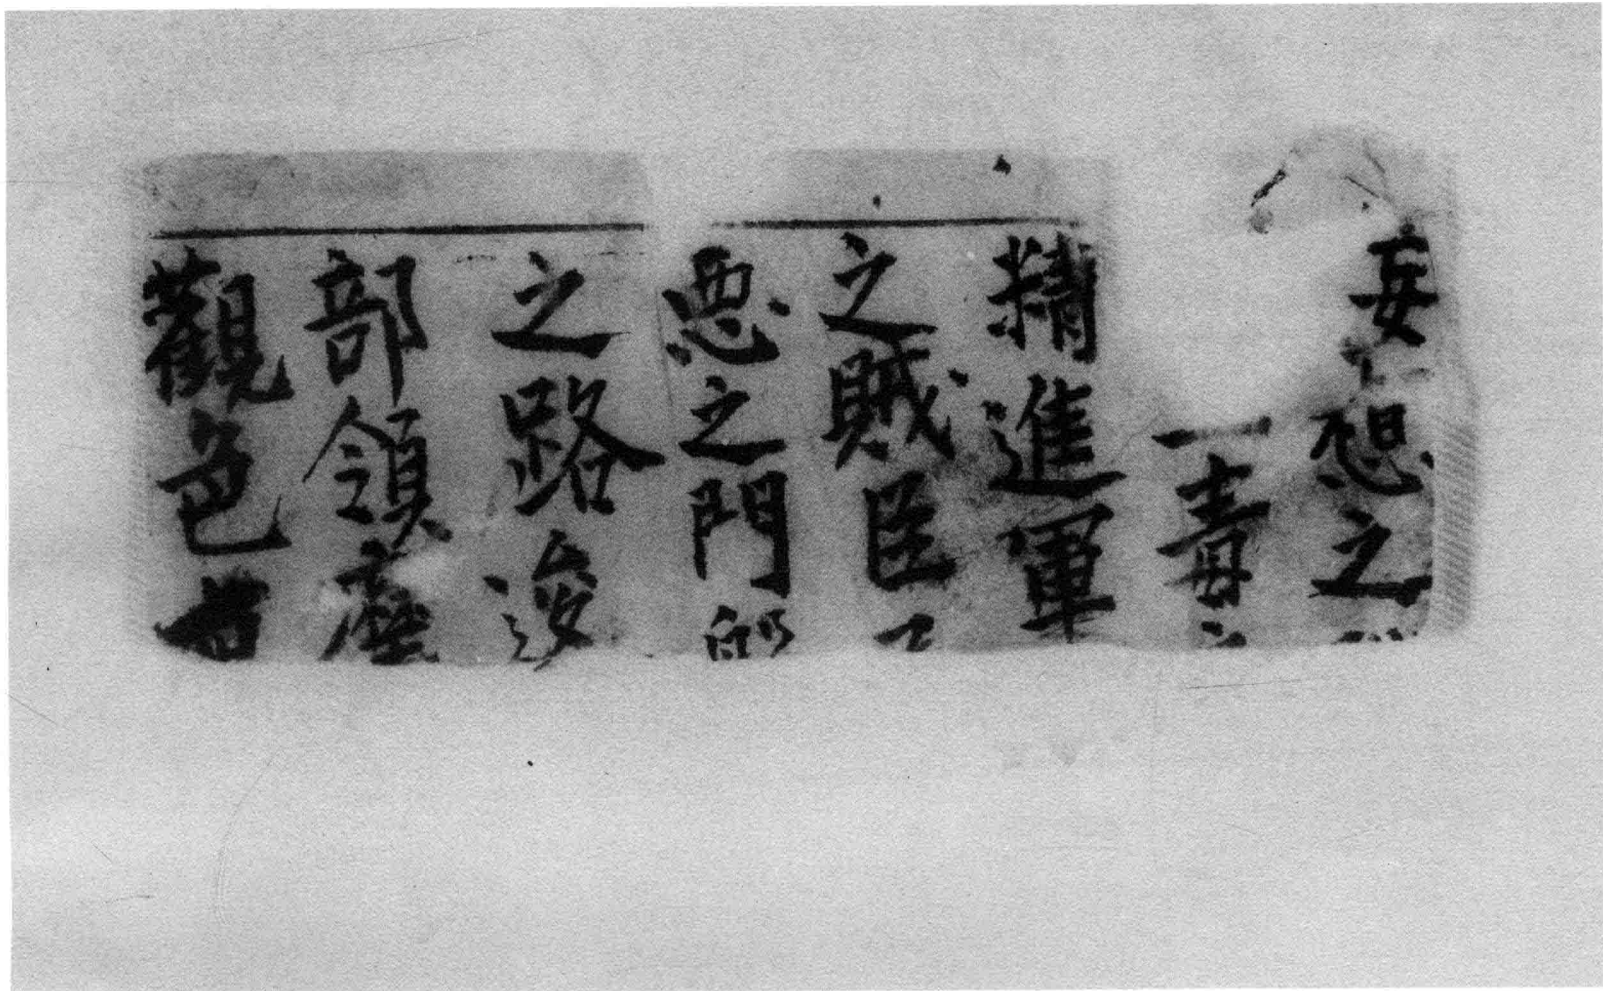 妄想之
一毒
精進軍
之賊臣
惡之門
之路逡
部領塵
觀色